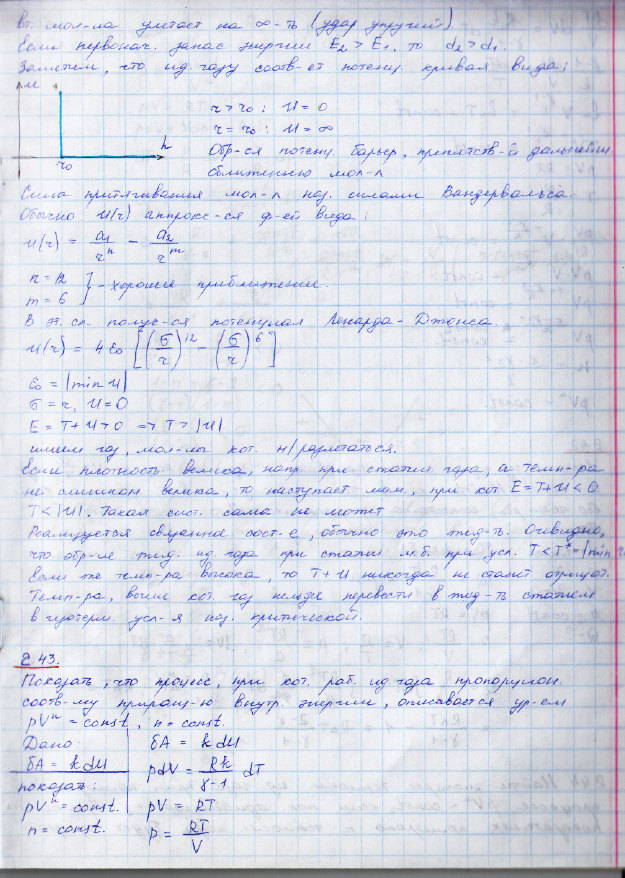 Вт. мол-ла улетает на ∞-ть (удар упругий)
Если первонач. запас энергии E₂ > E₁, то d₂ > d₁.
Заметим, что ид. газу соотв-ет потенц. кривая вида:
u
r > r₀ : U = 0
r = r₀ : U = ∞
r
r₀
Обр-ся потенц. барьер, препятств-й дальнейш.
сближению мол-л
Сила притягивания мол-л наз. силами Вандервальса.
Обычно U(r) аппрокс-ся ф-ей вида:
U(r) = a₁/rⁿ − a₂/rᵐ
n = 12
m = 6 } - хорошее приближение.
В эт. сл. получ-ся потенциал Ленарда-Джонса.
U(r) = 4ε₀ [(σ/r)¹² − (σ/r)⁶]
ε₀ = |min U|
σ = r, U = 0
E = T + U > 0 => T > |U|
имеем газ, мол-лы кот. м/разлетаться.
Если плотность велика, напр. при сжатии газа, а темп-ра
не слишком велика, то наступает мом., при кот. E = T + U < 0
T < |U|. Такая сист. сама не может
Реализуется связанное сост-е, обычно это жид-ть. Очевидно,
что обр-ие жид. из газа при сжатии м.б. при усл. T < T* = |min
Если же темп-ра высока, то T + U никогда не станет отрицат.
Темп-ра, выше кот. газ нельзя перевести в жид-ть сжатием
в изотерм. усл-я наз. критической.
2.43.
Показать, что процесс, при кот. раб. ид. газа пропорцион.
соотв-му приращ-ю внутр. энергии, описывается ур-ем
pVⁿ = const, n = const.
Дано: δA = k dU
δA = k dU pdV = Rk/(γ-1) dT
показать:
pVⁿ = const. pV = RT
n = const. p = RT/V